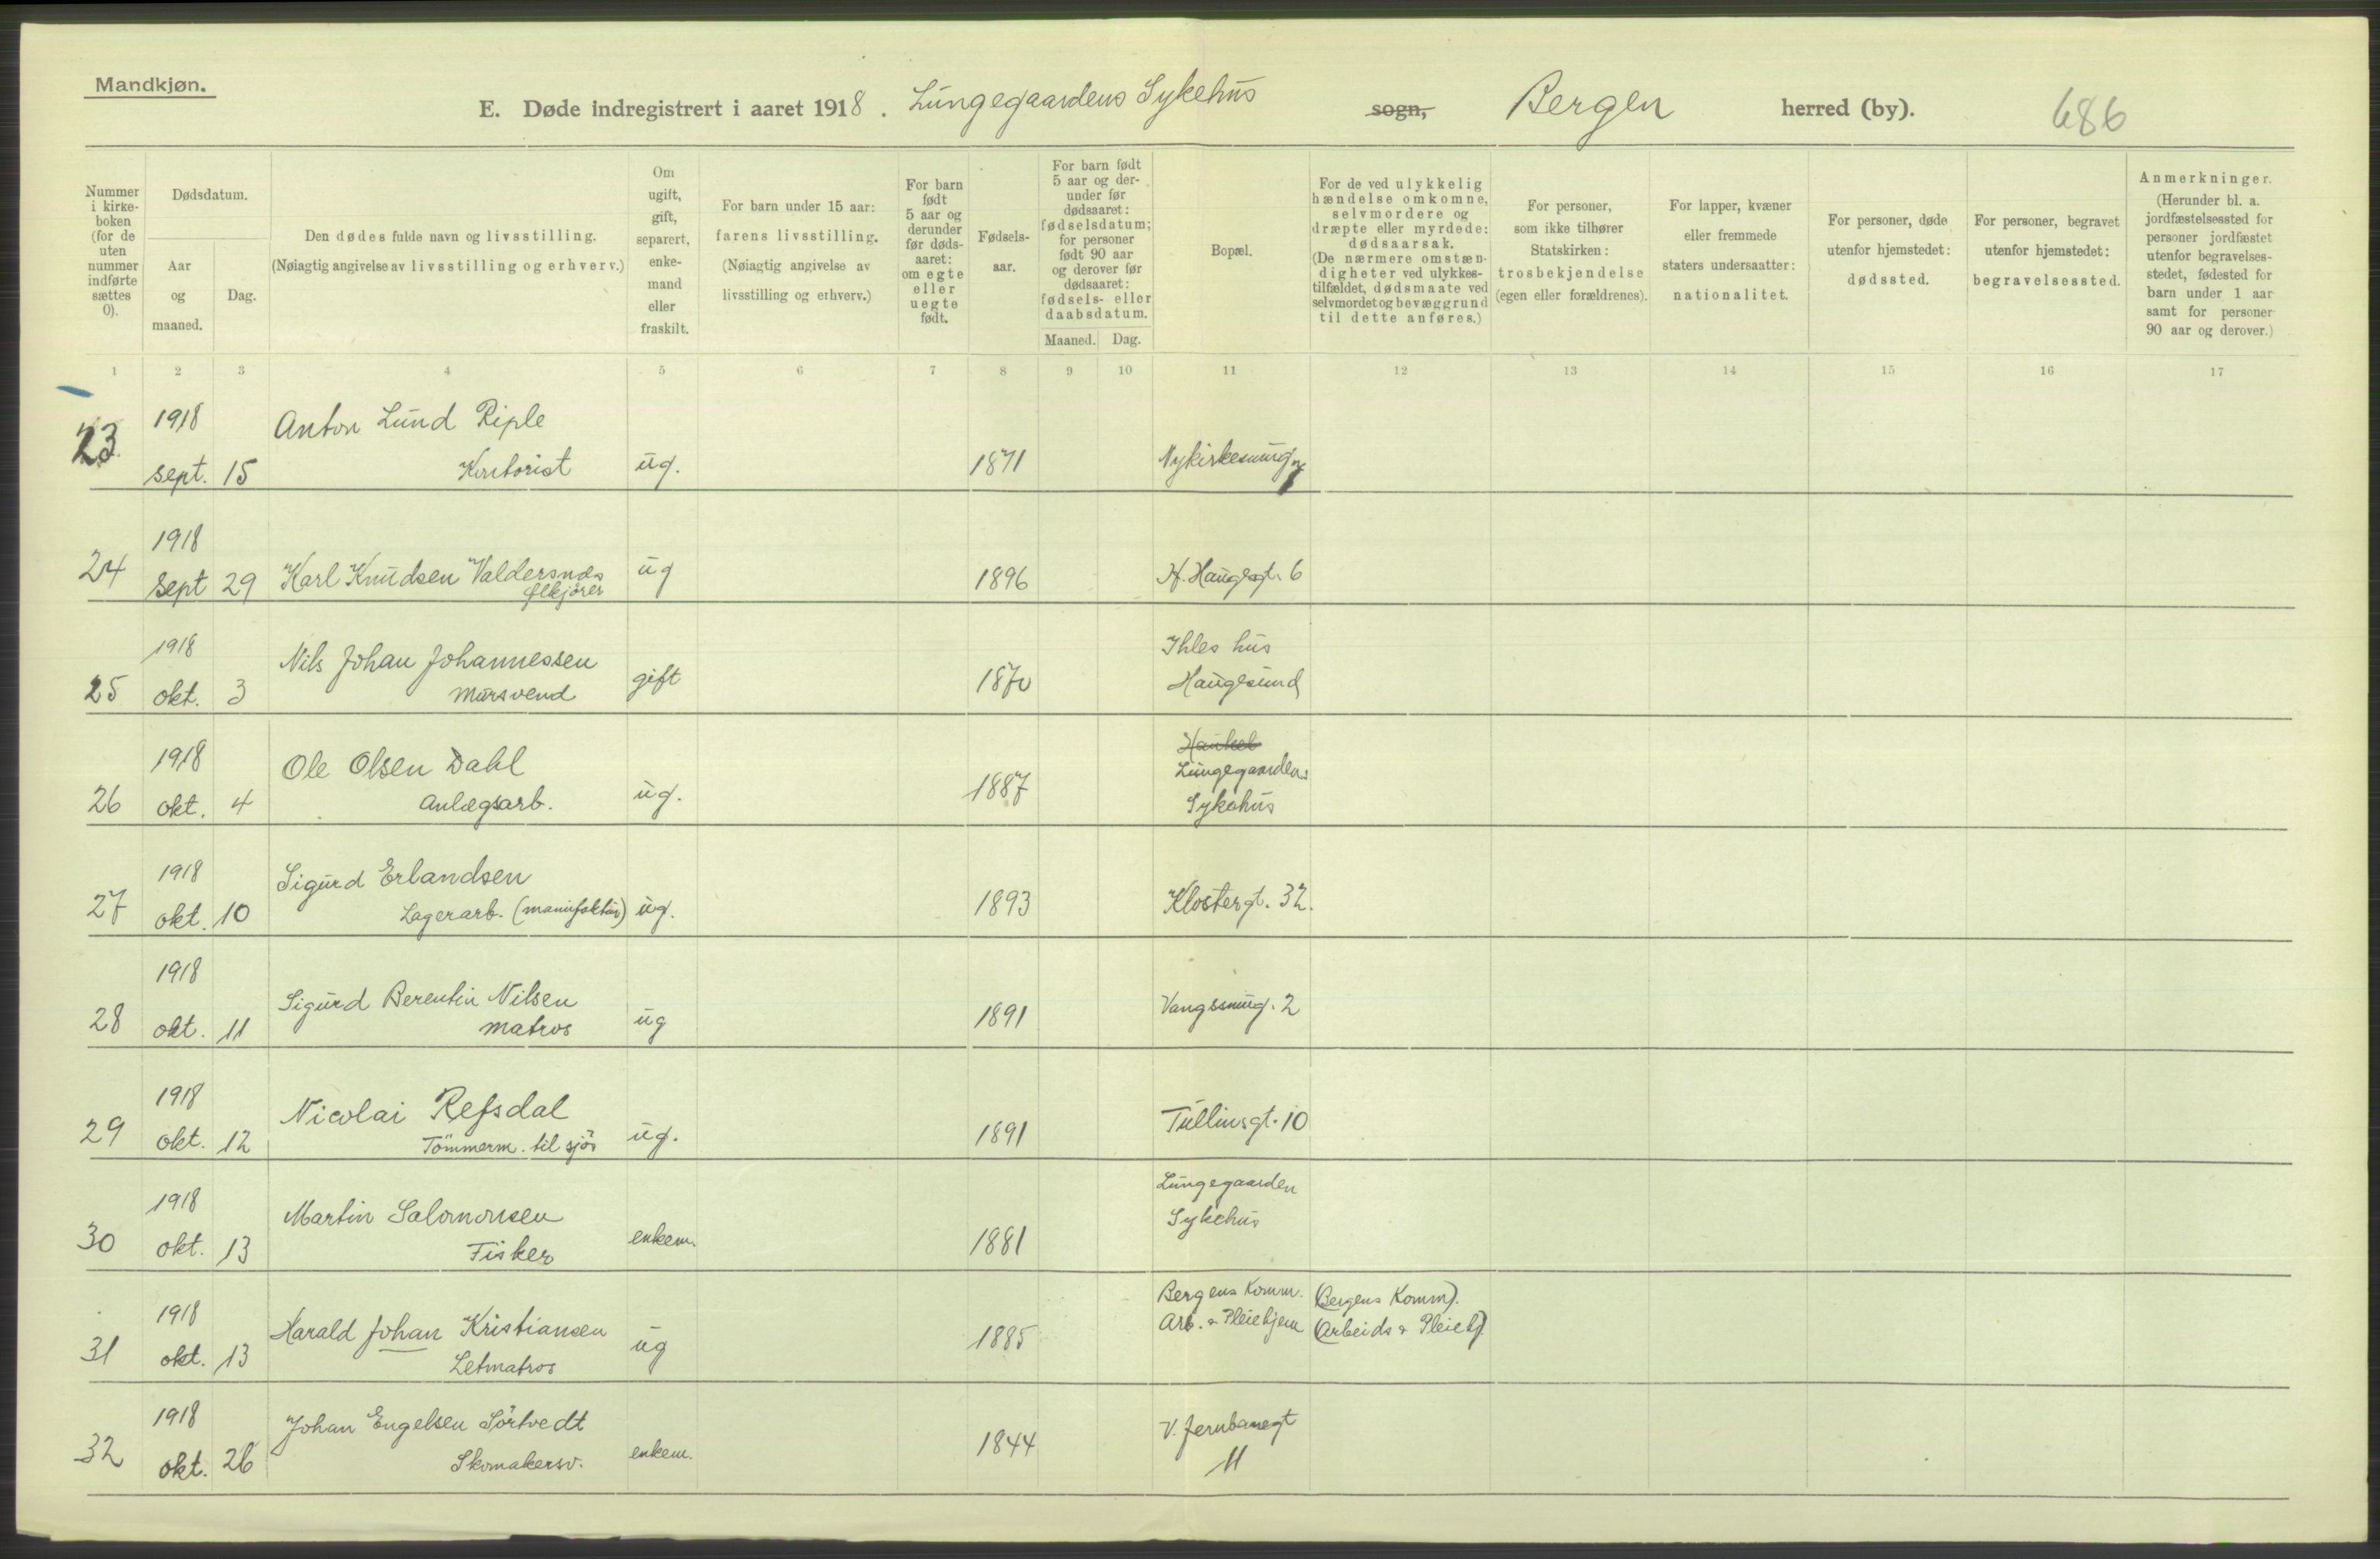 Mandkjøn.
E. Døde indregistrert i aaret 1918. Lungegaardens Sykehus sogn, Bergen herred (by). 686
Nummer i kirke- boken (for de uten nummer indførte sættes 0).
Dødsdatum.
Aar og maaned.
Dag.
Den dødes fulde navn og livsstilling.
(Nøiagtig angivelse av livsstilling og erhverv.)
Om ugift, gift, separert, enke- mand eller fraskilt.
For barn under 15 aar: farens livsstilling. (Nøiagtig angivelse av livsstilling og erhverv.)
For barn født 5 aar og derunder før døds- aaret: om egte eller uegte født.
Fødsels- aar.
For barn født 5 aar og der- under før dødsaaret: fødselsdatum; for personer født 90 aar og derover før dødsaaret: fødsels- eller daabsdatum.
Maaned. Dag.
Bopæl.
For de ved ulykkelig hændelse omkomne, selvmordere og dræpte eller myrdede: dødsaarsak. (De nærmere omstæn- digheter ved ulykkes- tilfældet, dødsmaate ved selvmordet og bevæggrund til dette anføres.)
For personer, som ikke tilhører Statskirken: trosbekjendelse (egen eller forældrenes).
For lapper, kvæner eller fremmede staters undersaatter: nationalitet.
For personer, døde utenfor hjemstedet: dødssted.
For personer, begravet utenfor hjemstedet: begravelsessted.
Anmerkninger. (Herunder bl. a. jordfæstelsessted for personer jordfæstet utenfor begravelses- stedet, fødested for barn under 1 aar samt for personer 90 aar og derover.)
1 2 3 4 5 6 7 8 9 10 11 12 13 14 15 16 17
1918 Anton Lund Riple
23 sept. 15 Kontorist ug. 1871 Nykirkesmug
1918
24 Sept 29 Karl Knudsen Valdersnes ug 1896 H. Haugesgt. 6
ølkjører
1918 Nils Johan Johannessen Ihles hus
25 okt. 3 Mursvend gift 1870 Haugesund
1918 Ole Olsen Dahl Lungegaardens
26 okt. 4 Anlægsarb. ug. 1887 Sykehus
1918 Sigurd Erlandsen
27 okt. 10 Lagerarb. (manufaktur) ug. 1893 Klostergt. 32.
1918 Sigurd Berentin Nilsen
28 okt. 11 Matros ug 1891 Vangssmug. 2
1918 Nicolai Refsdal
29 okt. 12 Tömmerm. til sjös ug. 1891 Tullinsgt. 10
1918 Martin Salomonsen Lungegaarden
30 okt. 13 Fisker enkem. 1881 Sykehus
1918 Harald Johan Kristiansen Bergens Komm. (Bergens Komm).
31 okt. 13 Letmatros ug 1885 Arb. & Pleiehjem (Arbeids & Pleiehj)
1918 Johan Engelsen Sörtvedt V. Jernbanegt
32 okt. 26 Skomakersv. enkem. 1844 11